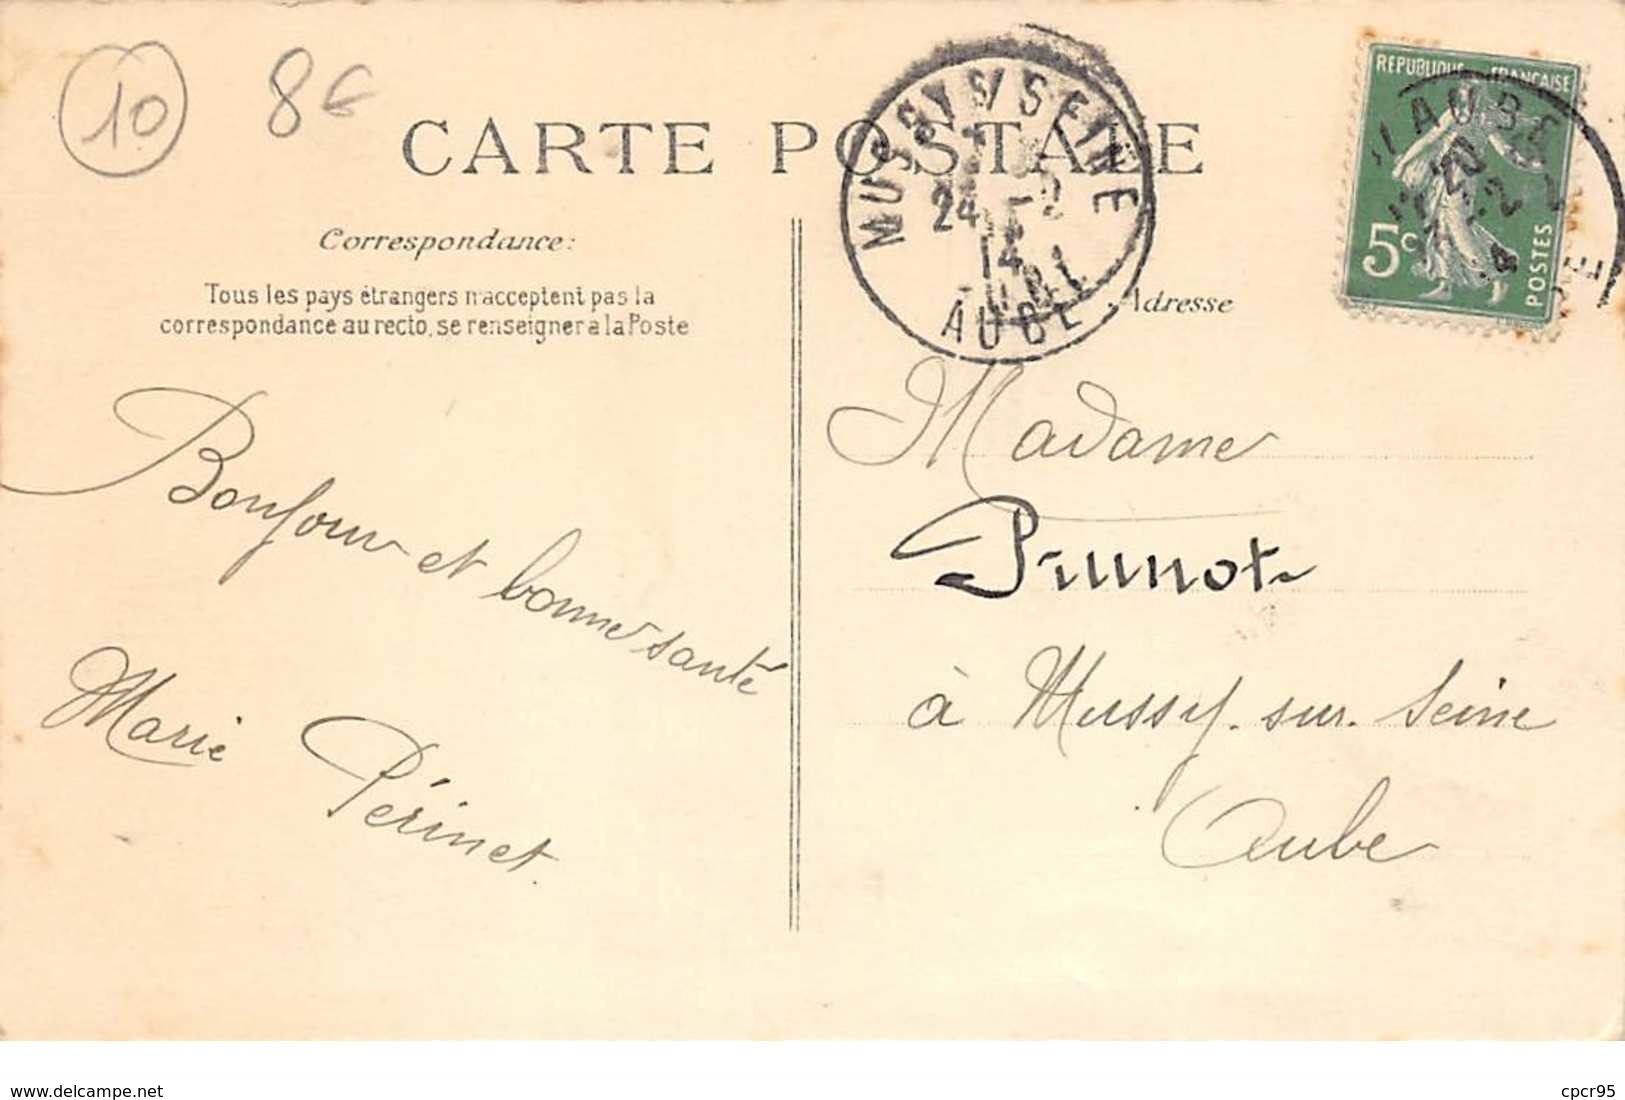 10
8€
CARTE POSTALE
Correspondance:
Tous les pays étrangers n'acceptent pas la
correspondance au recto, se renseigner a la Poste
Bonjour et bonne santé
Marie Périnet.
MUSSY S/SEINE
24 -2
14
AUBE
REPUBLIQUE FRANÇAISE
5c
POSTES
S/ AUBE
20
-2
Adresse
Madame
Prunot
à Mussy. sur. Seine
Aube
www.delcampe.net
cpcr95